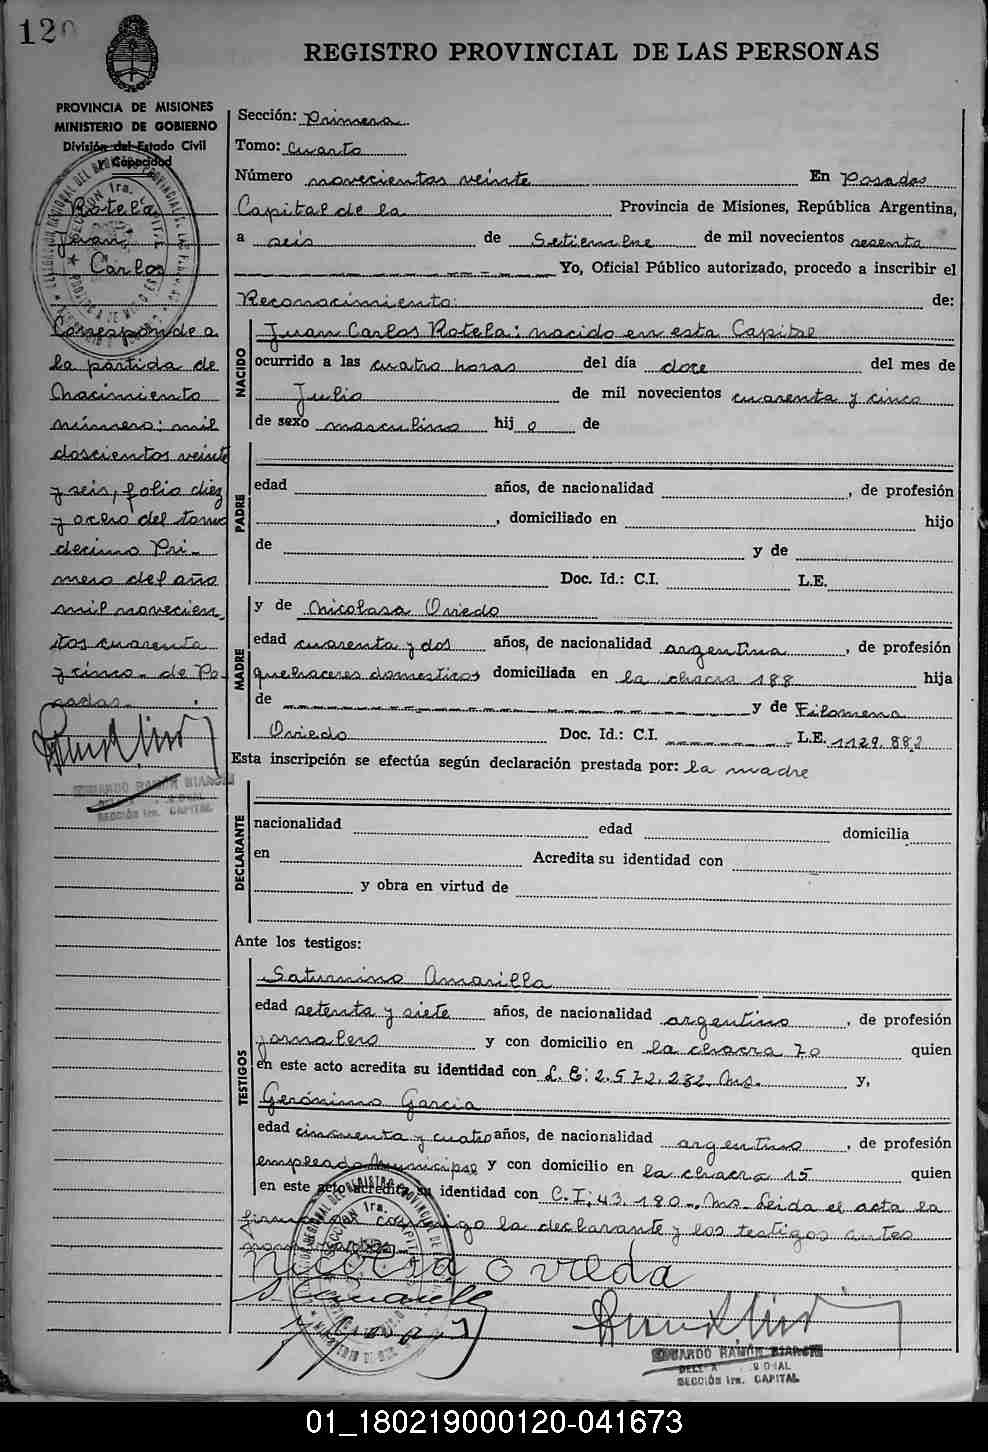 120
REGISTRO PROVINCIAL DE LAS PERSONAS
PROVINCIA DE MISIONES
MINISTERIO DE GOBIERNO
División del Estado Civil
y Capacidad
Rotela
Juan
Carlos
Corresponde a
la partida de
Nacimiento
número: mil
doscientos veinte
y seis, folio diez
y ocho del tomo
decimo Pri-
mero del año
mil novecien
tos cuarenta
y cinco - de Po-
sadas.-
EDUARDO RAMÓN BIANCHI
SECCIÓN 1ra. CAPITAL
Sección: Primera
Tomo: Cuarto
Número novecientos veinte En Posadas
Capital de la Provincia de Misiones, República Argentina,
a seis de Setiembre de mil novecientos sesenta
Yo, Oficial Público autorizado, procedo a inscribir el
Reconocimiento: de:
NACIDO
Juan Carlos Rotela: nacido en esta Capital
ocurrido a las cuatro horas del día doce del mes de
Julio de mil novecientos cuarenta y cinco
de sexo masculino hijo de
PADRE
edad años, de nacionalidad , de profesión
, domiciliado en hijo
de y de
Doc. Id.: C.I. L.E.
MADRE
y de Nicolasa Oviedo
edad cuarenta y dos años, de nacionalidad argentina, de profesión
quehaceres domesticos domiciliada en la chacra 188 hija
de y de Filomena
Oviedo Doc. Id.: C.I. L.E. 1129.882
Esta inscripción se efectúa según declaración prestada por: la madre
DECLARANTE
nacionalidad edad domicilia
en Acredita su identidad con
y obra en virtud de
Ante los testigos:
TESTIGOS
Saturnino Amarilla
edad setenta y siete años, de nacionalidad argentino, de profesión
jornalero y con domicilio en la chacra 70 quien
en este acto acredita su identidad con L.E: 2.572.282. Ms. y,
Gerónimo Garcia
edad cincuenta y cuatro años, de nacionalidad argentino, de profesión
empleado Municipal y con domicilio en la chacra 15 quien
en este acto acredita su identidad con C.I: 43.180-. Ms. Leida el acta la
firman conmigo la declarante y los testigos antes
nombrados.-
Nicolasa Ovieda
S. Amarilla
EDUARDO RAMÓN BIANCHI
SECCIÓN 1ra. CAPITAL
01_180219000120-041673